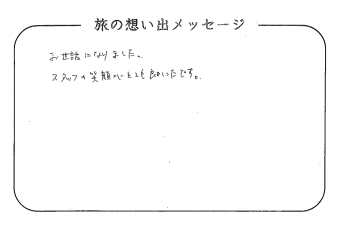 旅の想い出メッセージ
お世話になりました。
スタッフの笑顔がとても良かったです。